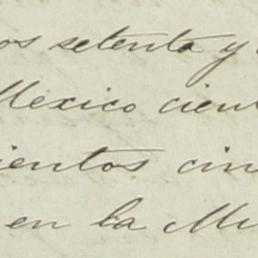 os setenta y
Mexico cient
ientos cin
en la Mu